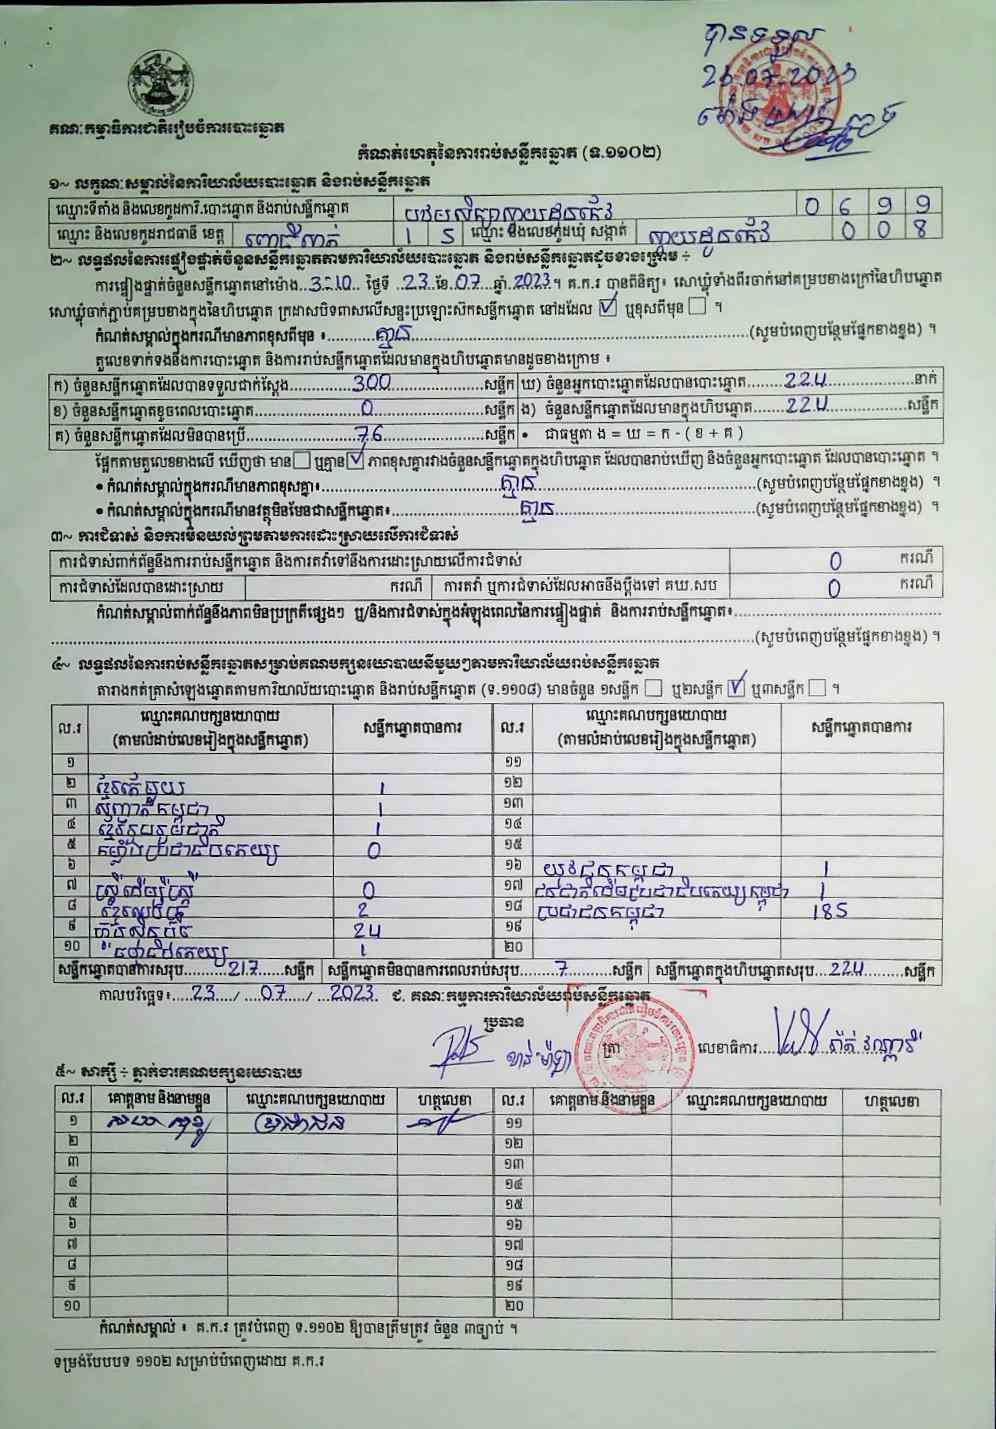 បានទទួល
23.07.2023
គណៈកម្មាធិការជាតិរៀបចំការបោះឆ្នោត
កំណត់ហេតុនៃការរាប់សន្លឹកឆ្នោត (ទ.១១០២)
១~ លក្ខណៈសម្គាល់នៃការិយាល័យបោះឆ្នោត និងរាប់សន្លឹកឆ្នោត
ឈ្មោះទីតាំង និងលេខកូដការិ.បោះឆ្នោត និងរាប់សន្លឹកឆ្នោត បឋមសិក្សាស្វាយដូនកែវ 0699
ឈ្មោះ និងលេខកូដរាជធានី ខេត្ត ពោធិ៍សាត់ 15 ឈ្មោះ និងលេខកូដឃុំ សង្កាត់ ស្វាយដូនកែវ 008
២~ លទ្ធផលនៃការផ្ទៀងផ្ទាត់ចំនួនសន្លឹកឆ្នោតតាមការិយាល័យបោះឆ្នោត និងរាប់សន្លឹកឆ្នោតដូចខាងក្រោម ÷
ការផ្ទៀងផ្ទាត់ចំនួនសន្លឹកឆ្នោតនៅម៉ោង..3:10.. ថ្ងៃទី ..23.ខែ.07..ឆ្នាំ.2023។ គ.ក.រ បានពិនិត្យ៖ សោឃ្លុំទាំងពីរចាក់គម្របខាងក្រៅនៃហិបឆ្នោត
សោឃ្លុំចាក់ភ្ជាប់គម្របខាងក្នុងនៃហិបឆ្នោត ក្រដាសបិទពាសលើសន្ទះប្រឡោះស៊កសន្លឹកឆ្នោត នៅដដែល ☑ ឬខុសពីមុន ☐ ។
កំណត់សម្គាល់ក្នុងករណីមានភាពខុសពីមុន ៖......គ្មាន......(សូមបំពេញបន្ថែមផ្នែកខាងខ្នង) ។
តួលេខទាក់ទងនឹងការបោះឆ្នោត និងការរាប់សន្លឹកឆ្នោតដែលមានក្នុងហិបឆ្នោតមានដូចខាងក្រោម ៖
ក) ចំនួនសន្លឹកឆ្នោតដែលបានទទួលជាក់ស្តែង......300......សន្លឹក ឃ) ចំនួនអ្នកបោះឆ្នោតដែលបានបោះឆ្នោត......224......នាក់
ខ) ចំនួនសន្លឹកឆ្នោតខូចពេលបោះឆ្នោត......0......សន្លឹក ង) ចំនួនសន្លឹកឆ្នោតដែលមានក្នុងហិបឆ្នោត......224......សន្លឹក
គ) ចំនួនសន្លឹកឆ្នោតដែលមិនបានប្រើ......76......សន្លឹក • ជាធម្មតា ង = ឃ = ក - ( ខ + គ )
ផ្អែកតាមតួលេខខាងលើ ឃើញថា មាន ☐ ឬគ្មាន ☑ ភាពខុសគ្នារវាងចំនួនសន្លឹកឆ្នោតក្នុងហិបឆ្នោត ដែលបានរាប់ឃើញ និងចំនួនអ្នកបោះឆ្នោត ដែលបានបោះឆ្នោត ។
• កំណត់សម្គាល់ក្នុងករណីមានភាពខុសគ្នា៖......គ្មាន......(សូមបំពេញបន្ថែមផ្នែកខាងខ្នង) ។
• កំណត់សម្គាល់ក្នុងករណីមានវត្ថុមិនមែនជាសន្លឹកឆ្នោត៖......គ្មាន......(សូមបំពេញបន្ថែមផ្នែកខាងខ្នង) ។
៣~ ការជំទាស់ និងការមិនយល់ព្រមតាមការដោះស្រាយលើការជំទាស់
ការជំទាស់ពាក់ព័ន្ធនឹងការរាប់សន្លឹកឆ្នោត និងការតវ៉ាទៅនឹងការដោះស្រាយលើការជំទាស់ 0 ករណី
ការជំទាស់ដែលបានដោះស្រាយ ករណី ការតវ៉ា ឬការជំទាស់ដែលអាចនឹងប្តឹងទៅ គឃ.សប 0 ករណី
កំណត់សម្គាល់ពាក់ព័ន្ធនឹងភាពមិនប្រក្រតីផ្សេងៗ ឬ/និងការជំទាស់ក្នុងអំឡុងពេលនៃការផ្ទៀងផ្ទាត់ និងការរាប់សន្លឹកឆ្នោត៖......
......(សូមបំពេញបន្ថែមផ្នែកខាងខ្នង) ។
៤~ លទ្ធផលនៃការរាប់សន្លឹកឆ្នោតសម្រាប់គណបក្សនយោបាយនីមួយៗតាមការិយាល័យរាប់សន្លឹកឆ្នោត
តារាងកត់ត្រាសំឡេងឆ្នោតតាមការិយាល័យបោះឆ្នោត និងរាប់សន្លឹកឆ្នោត (ទ.១១០៨) មានចំនួន ១សន្លឹក ☐ ឬ២សន្លឹក ☑ ឬ៣សន្លឹក ☐ ។
ល.រ ឈ្មោះគណបក្សនយោបាយ (តាមលំដាប់លេខរៀងក្នុងសន្លឹកឆ្នោត) សន្លឹកឆ្នោតបានការ ល.រ ឈ្មោះគណបក្សនយោបាយ (តាមលំដាប់លេខរៀងក្នុងសន្លឹកឆ្នោត) សន្លឹកឆ្នោតបានការ
១ ១១
២ ខ្មែរតែមួយ 1 ១២
៣ សញ្ជាតិកម្ពុជា 1 ១៣
៤ ខ្មែររួបរួមជាតិ 1 ១៤
៥ កម្លាំងប្រជាធិបតេយ្យ 0 ១៥
៦ ១៦ យុវជនកម្ពុជា 1
៧ ស្ត្រីដើម្បីស្ត្រី 0 ១៧ ជនជាតិដើមប្រជាធិបតេយ្យកម្ពុជា 1
៨ 2 ១៨ ប្រជាជនកម្ពុជា 185
៩ ហ៊្វុនស៊ិនប៉ិច 24 ១៩
១០ 1 ២០
សន្លឹកឆ្នោតបានការសរុប......217......សន្លឹក សន្លឹកឆ្នោតមិនបានការពេលរាប់សរុប......7......សន្លឹក សន្លឹកឆ្នោតក្នុងហិបឆ្នោតសរុប...224......សន្លឹក
កាលបរិច្ឆេទ៖......23..../....07...../....2023. ជ. គណៈកម្មការការិយាល័យរាប់សន្លឹកឆ្នោត
ប្រធាន
ត្រា លេខាធិការ......
៥~ សាក្សី ÷ ភ្នាក់ងារគណបក្សនយោបាយ
ល.រ គោត្តនាម និងនាមខ្លួន ឈ្មោះគណបក្សនយោបាយ ហត្ថលេខា ល.រ គោត្តនាម និងនាមខ្លួន ឈ្មោះគណបក្សនយោបាយ ហត្ថលេខា
១ ប្រជាជន ១១
២ ១២
៣ ១៣
៤ ១៤
៥ ១៥
៦ ១៦
៧ ១៧
៨ ១៨
៩ ១៩
១០ ២០
កំណត់សម្គាល់ ៖ គ.ក.រ ត្រូវបំពេញ ទ.១១០២ ឱ្យបានត្រឹមត្រូវ ចំនួន ៣ច្បាប់ ។
ទម្រង់បែបបទ ១១០២ សម្រាប់បំពេញដោយ គ.ក.រ